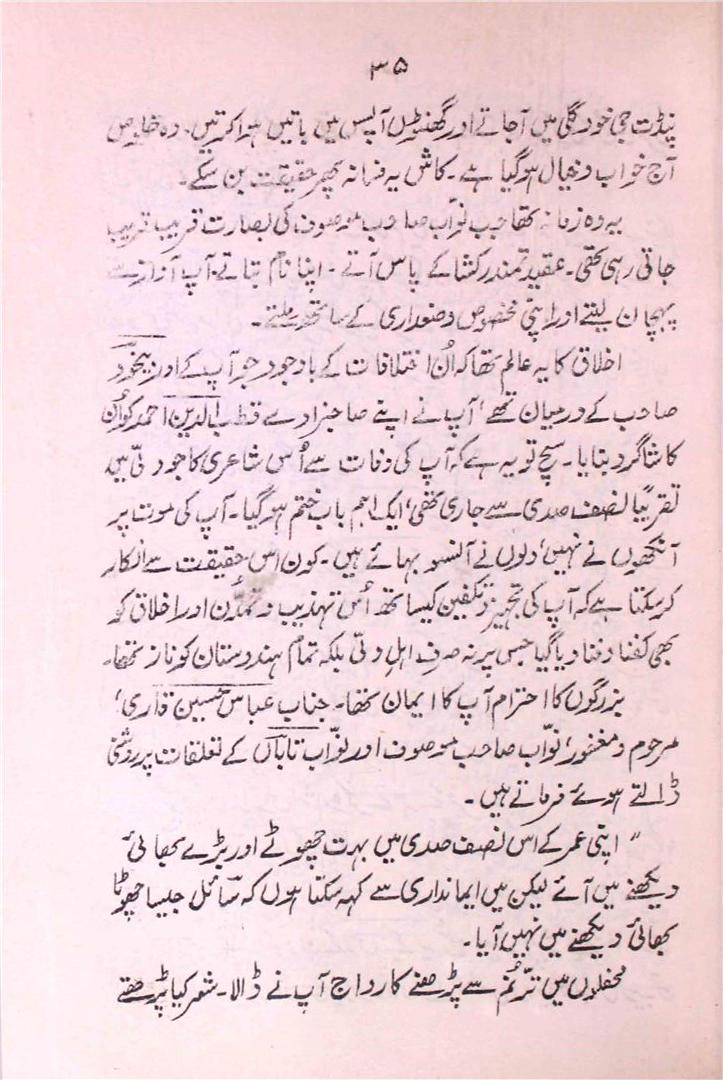 ۳۵
پنڈت جی خود گلی میں آجاتے اور گھنٹوں آپس میں باتیں ہوا کرتیں۔ وہ خلوص
آج خواب و خیال ہو گیا ہے۔ کاش یہ فسانہ پھر حقیقت بن سکے۔
یہ وہ زمانہ تھا جب نواب صاحب موصوف کی بصارت قریب قریب
جاتی رہی تھی۔ عقیدتمند رکشا کے پاس آتے۔ اپنا نام بتاتے۔ آپ آواز سے
پہچان لیتے اور اپنی مخصوص وضعداری کے ساتھ ملتے۔
اخلاق کا یہ عالم تھا کہ اُن اختلافات کے باوجود جو آپ کے اور بیخود
صاحب کے درمیان تھے، آپ نے اپنے صاحبزادے قطب الدین احمد کو اُن
کا شاگرد بنایا۔ سچ تو یہ ہے کہ آپ کی وفات سے اُس شاعری کا جو دلّی میں
تقریباً نصف صدی سے جاری تھی، ایک اہم باب ختم ہو گیا۔ آپ کی موت پر
آنکھوں نے نہیں، دلوں نے آنسو بہائے ہیں۔ کون اس حقیقت سے انکار
کر سکتا ہے کہ آپ کی تجہیز و تکفین کیساتھ اُس تہذیب و تمدّن اور اخلاق کو
بھی کفنا دفنا دیا گیا جس پر نہ صرف اہلِ دلّی بلکہ تمام ہندوستان کو ناز تھا۔
بزرگوں کا احترام آپ کا ایمان تھا۔ جناب عباس حسین قاری،
مرحوم و مغفور، نوّاب صاحب موصوف اور نوّاب تاباں کے تعلقات پر روشنی
ڈالتے ہوئے فرماتے ہیں۔
" اپنی عمر کے اس نصف صدی میں بہت چھوٹے اور بڑے بھائی
دیکھنے میں آئے لیکن میں ایمانداری سے کہہ سکتا ہوں کہ سائل جیسا چھوٹا
بھائی دیکھنے میں نہیں آیا۔
محفلوں میں ترنّم سے پڑھنے کا رواج آپ نے ڈالا۔ شعر کیا پڑھتے